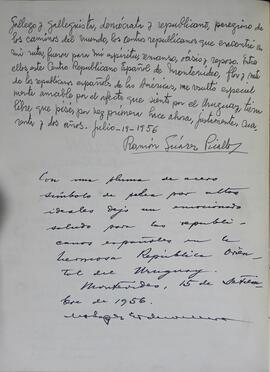 Gallego y galleguista, demócrata y republicano, peregrino de
los caminos del mundo, los centros republicanos que encontré en
mi ruta, fueron para mi espíritu remanso, oasis y reposo. Entre
ellos este Centro Republicano Español de Montevideo, flor y
de los republicanos españoles de las Américas, me resultó especial
mente amable por el afecto que siento por el Uruguay, tierra
libre que pisé por vez primera hace ahora, justamente, cua
renta y dos años. Julio-18-1956
Ramón Suárez Picallo
Con una pluma de acero
símbolo de pelea por altos
ideales dejo un emocionado
saludo para los republi-
canos españoles en la
hermosa República Orien-
tal del Uruguay.
Montevideo, 15 de Setiem
bre de 1956.